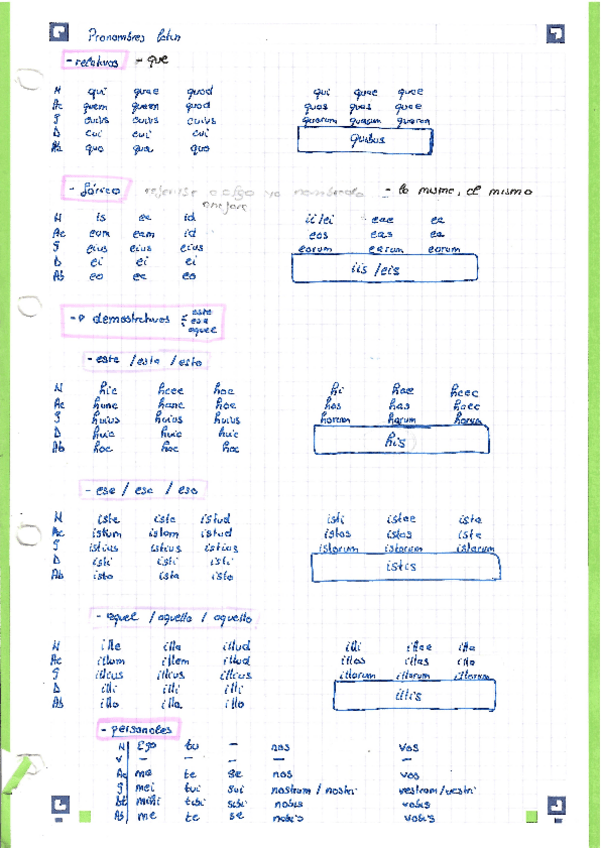 Pronombres latín
- relativos - que
N qui quae quod qui quae quae
Ac quem quam quod quos quas quae
G cuius cuius cuius quorum quarum quorum
D cui cui cui
Ab quo qua quo quibus
- fórico referirse a algo ya nombrado - lo mismo, el mismo
anáfora
N is ea id ii/ei eae ea
Ac eum eam id eos eas ea
G eius eius eius eorum earum eorum
D ei ei ei
Ab eo ea eo iis/eis
-> demostrativos este
esa
aquel
- este / esta / esto
N hic haec hoc hi hae haec
Ac hunc hanc hoc hos has haec
G huius huius huius horum harum horum
D huic huic huic
Ab hoc hac hoc his
- ese / esa / eso
N iste ista istud isti istae ista
Ac istum istam istud istos istas ista
G istius istius istius istorum istarum istorum
D isti isti isti
Ab isto ista isto istis
- aquel / aquella / aquello
N ille illa illud illi illae illa
Ac illum illam illud illos illas illa
G illius illius illius illorum illarum illorum
D illi illi illi
Ab illo illa illo illis
- personales
N Ego tu - nos vos
V - - - - -
Ac me te se nos vos
G mei tui sui nostrum / nostri vestrum/vestri
Dt mihi tibi sibi nobis vobis
Ab me te se nobis vobis